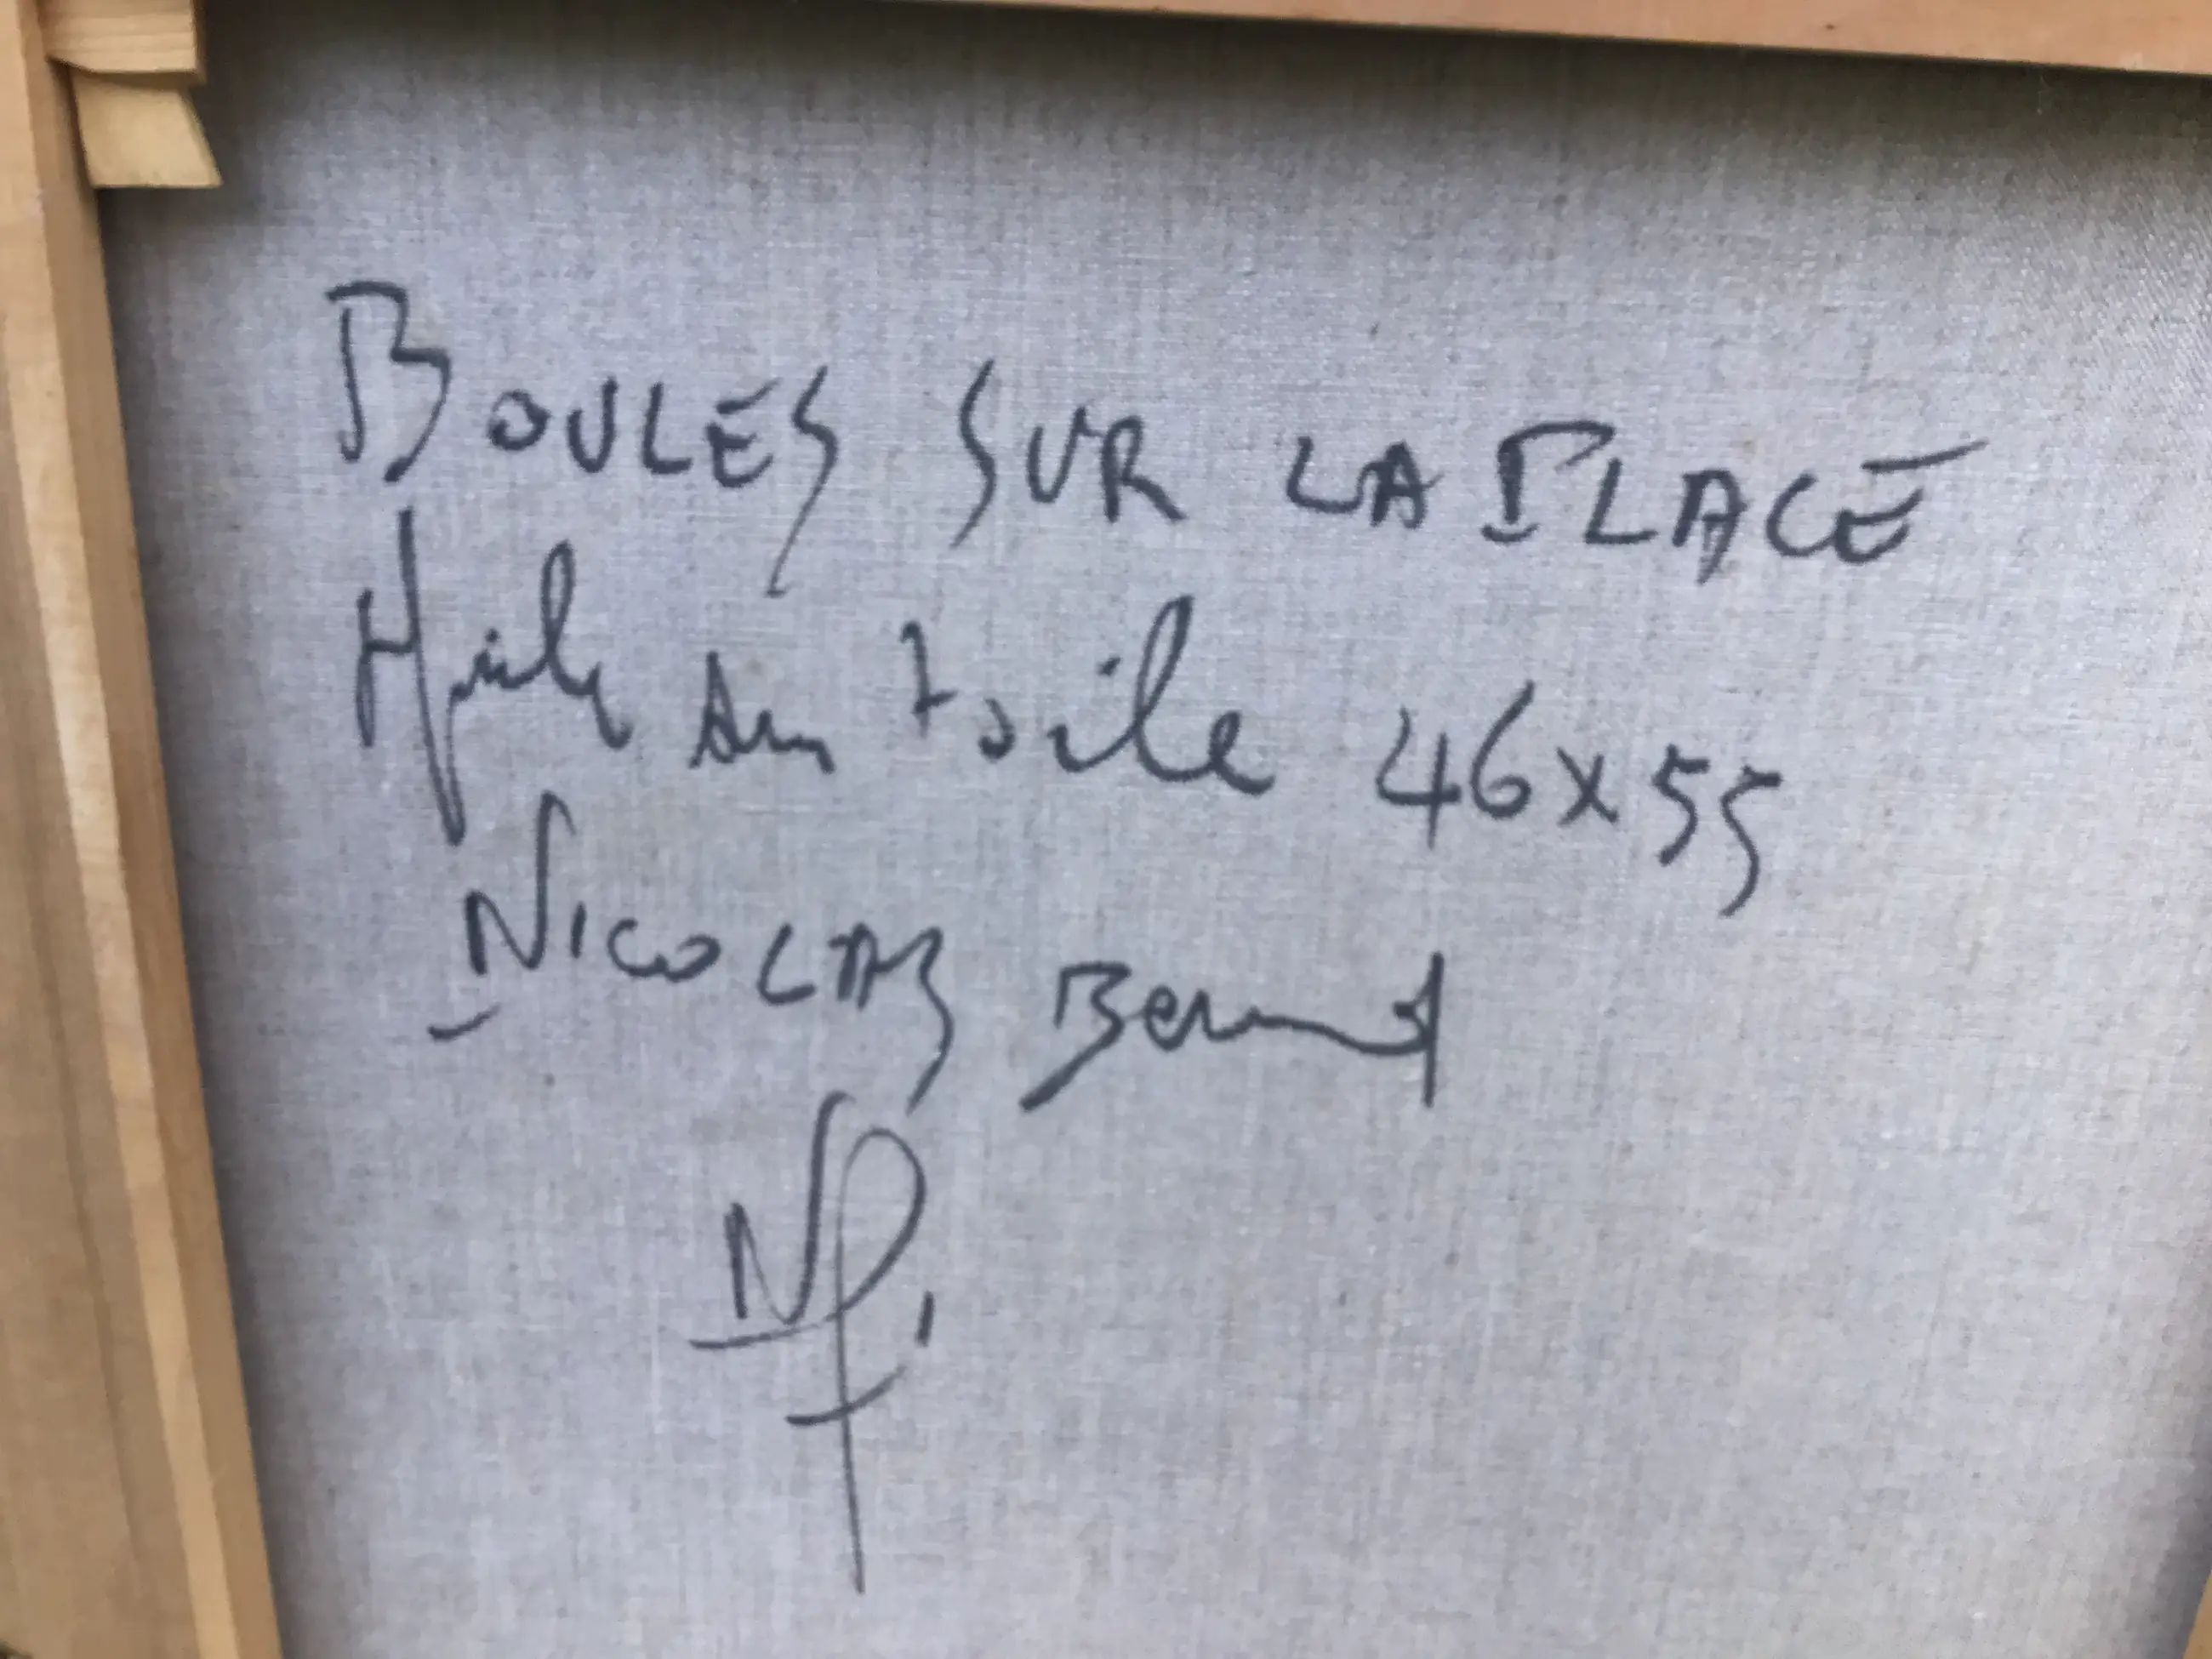 BOULES SUR LA PLACE
Huile sur toile 46x55
NICOLAS